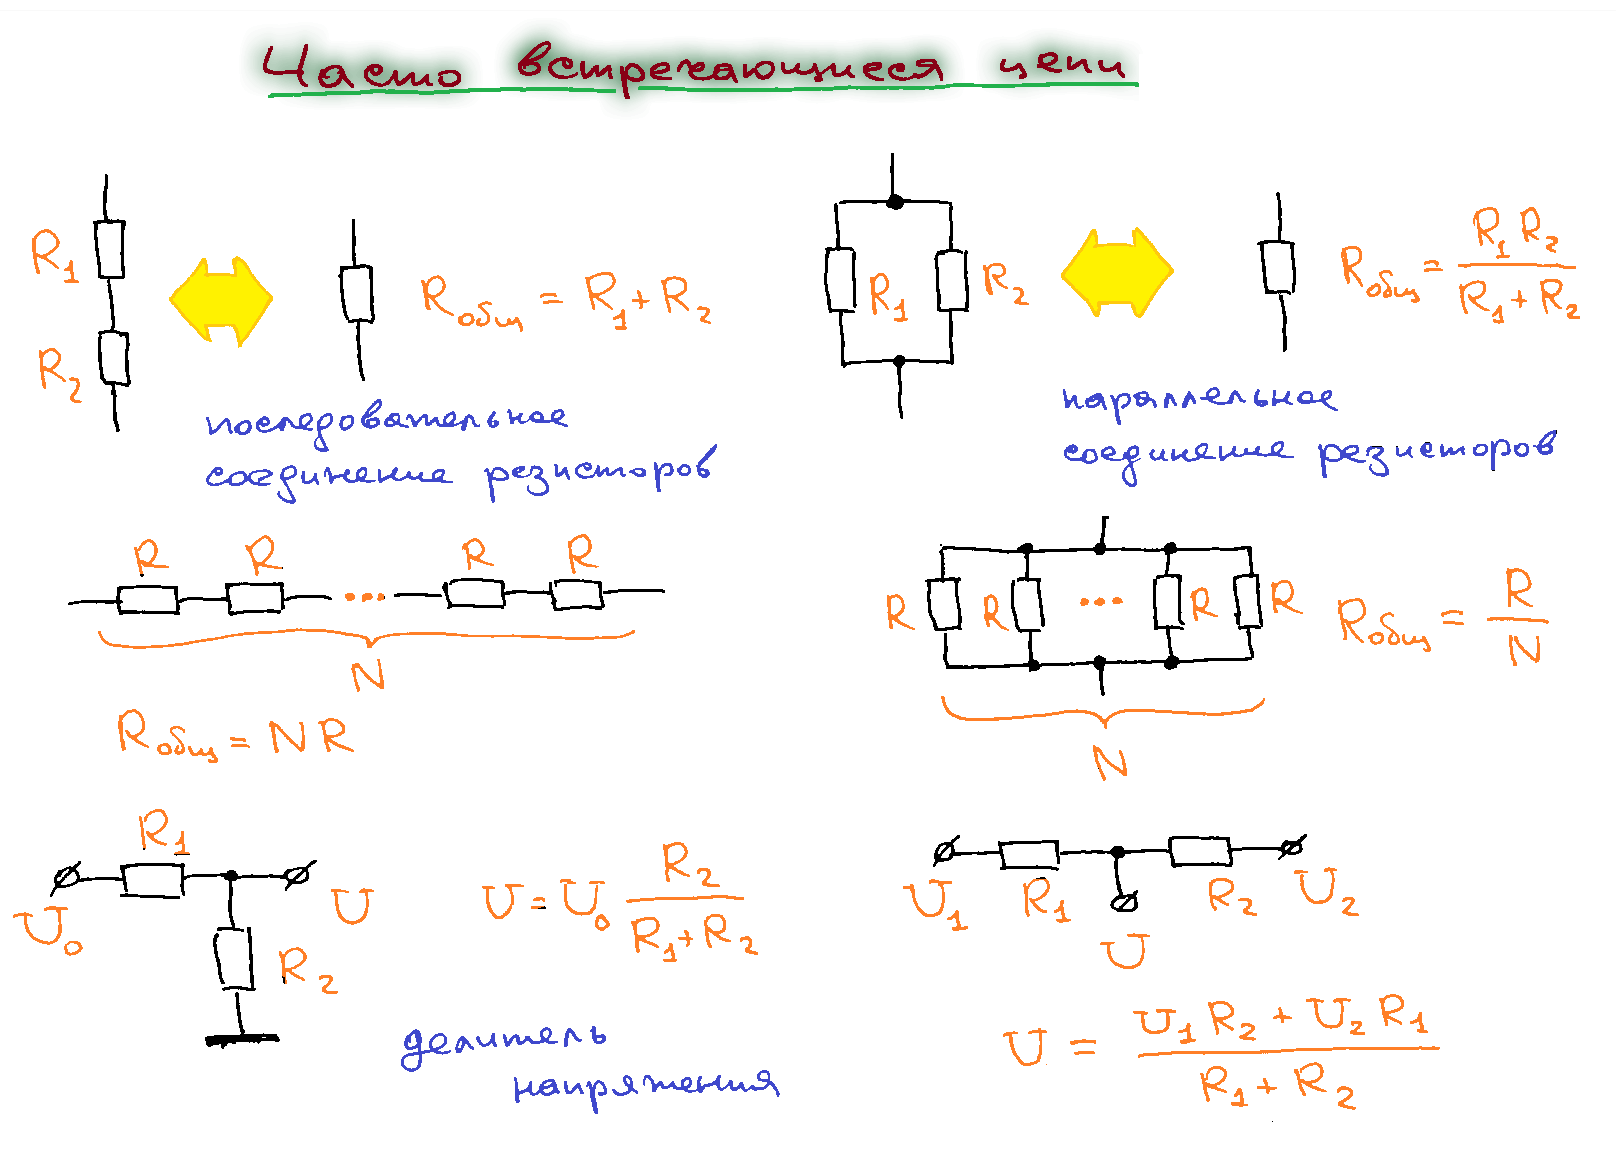 Часто встречающиеся цепи
R₁
R₂
Rобщ = R₁ + R₂
последовательное
соединение резисторов
R₁
R₂
Rобщ = R₁ R₂ / (R₁ + R₂)
параллельное
соединение резисторов
R R ... R R
N
Rобщ = N R
R R ... R R
N
Rобщ = R / N
R₁
U₀
U
R₂
U = U₀ R₂ / (R₁ + R₂)
делитель
напряжения
U₁ R₁ R₂ U₂
U
U = (U₁ R₂ + U₂ R₁) / (R₁ + R₂)